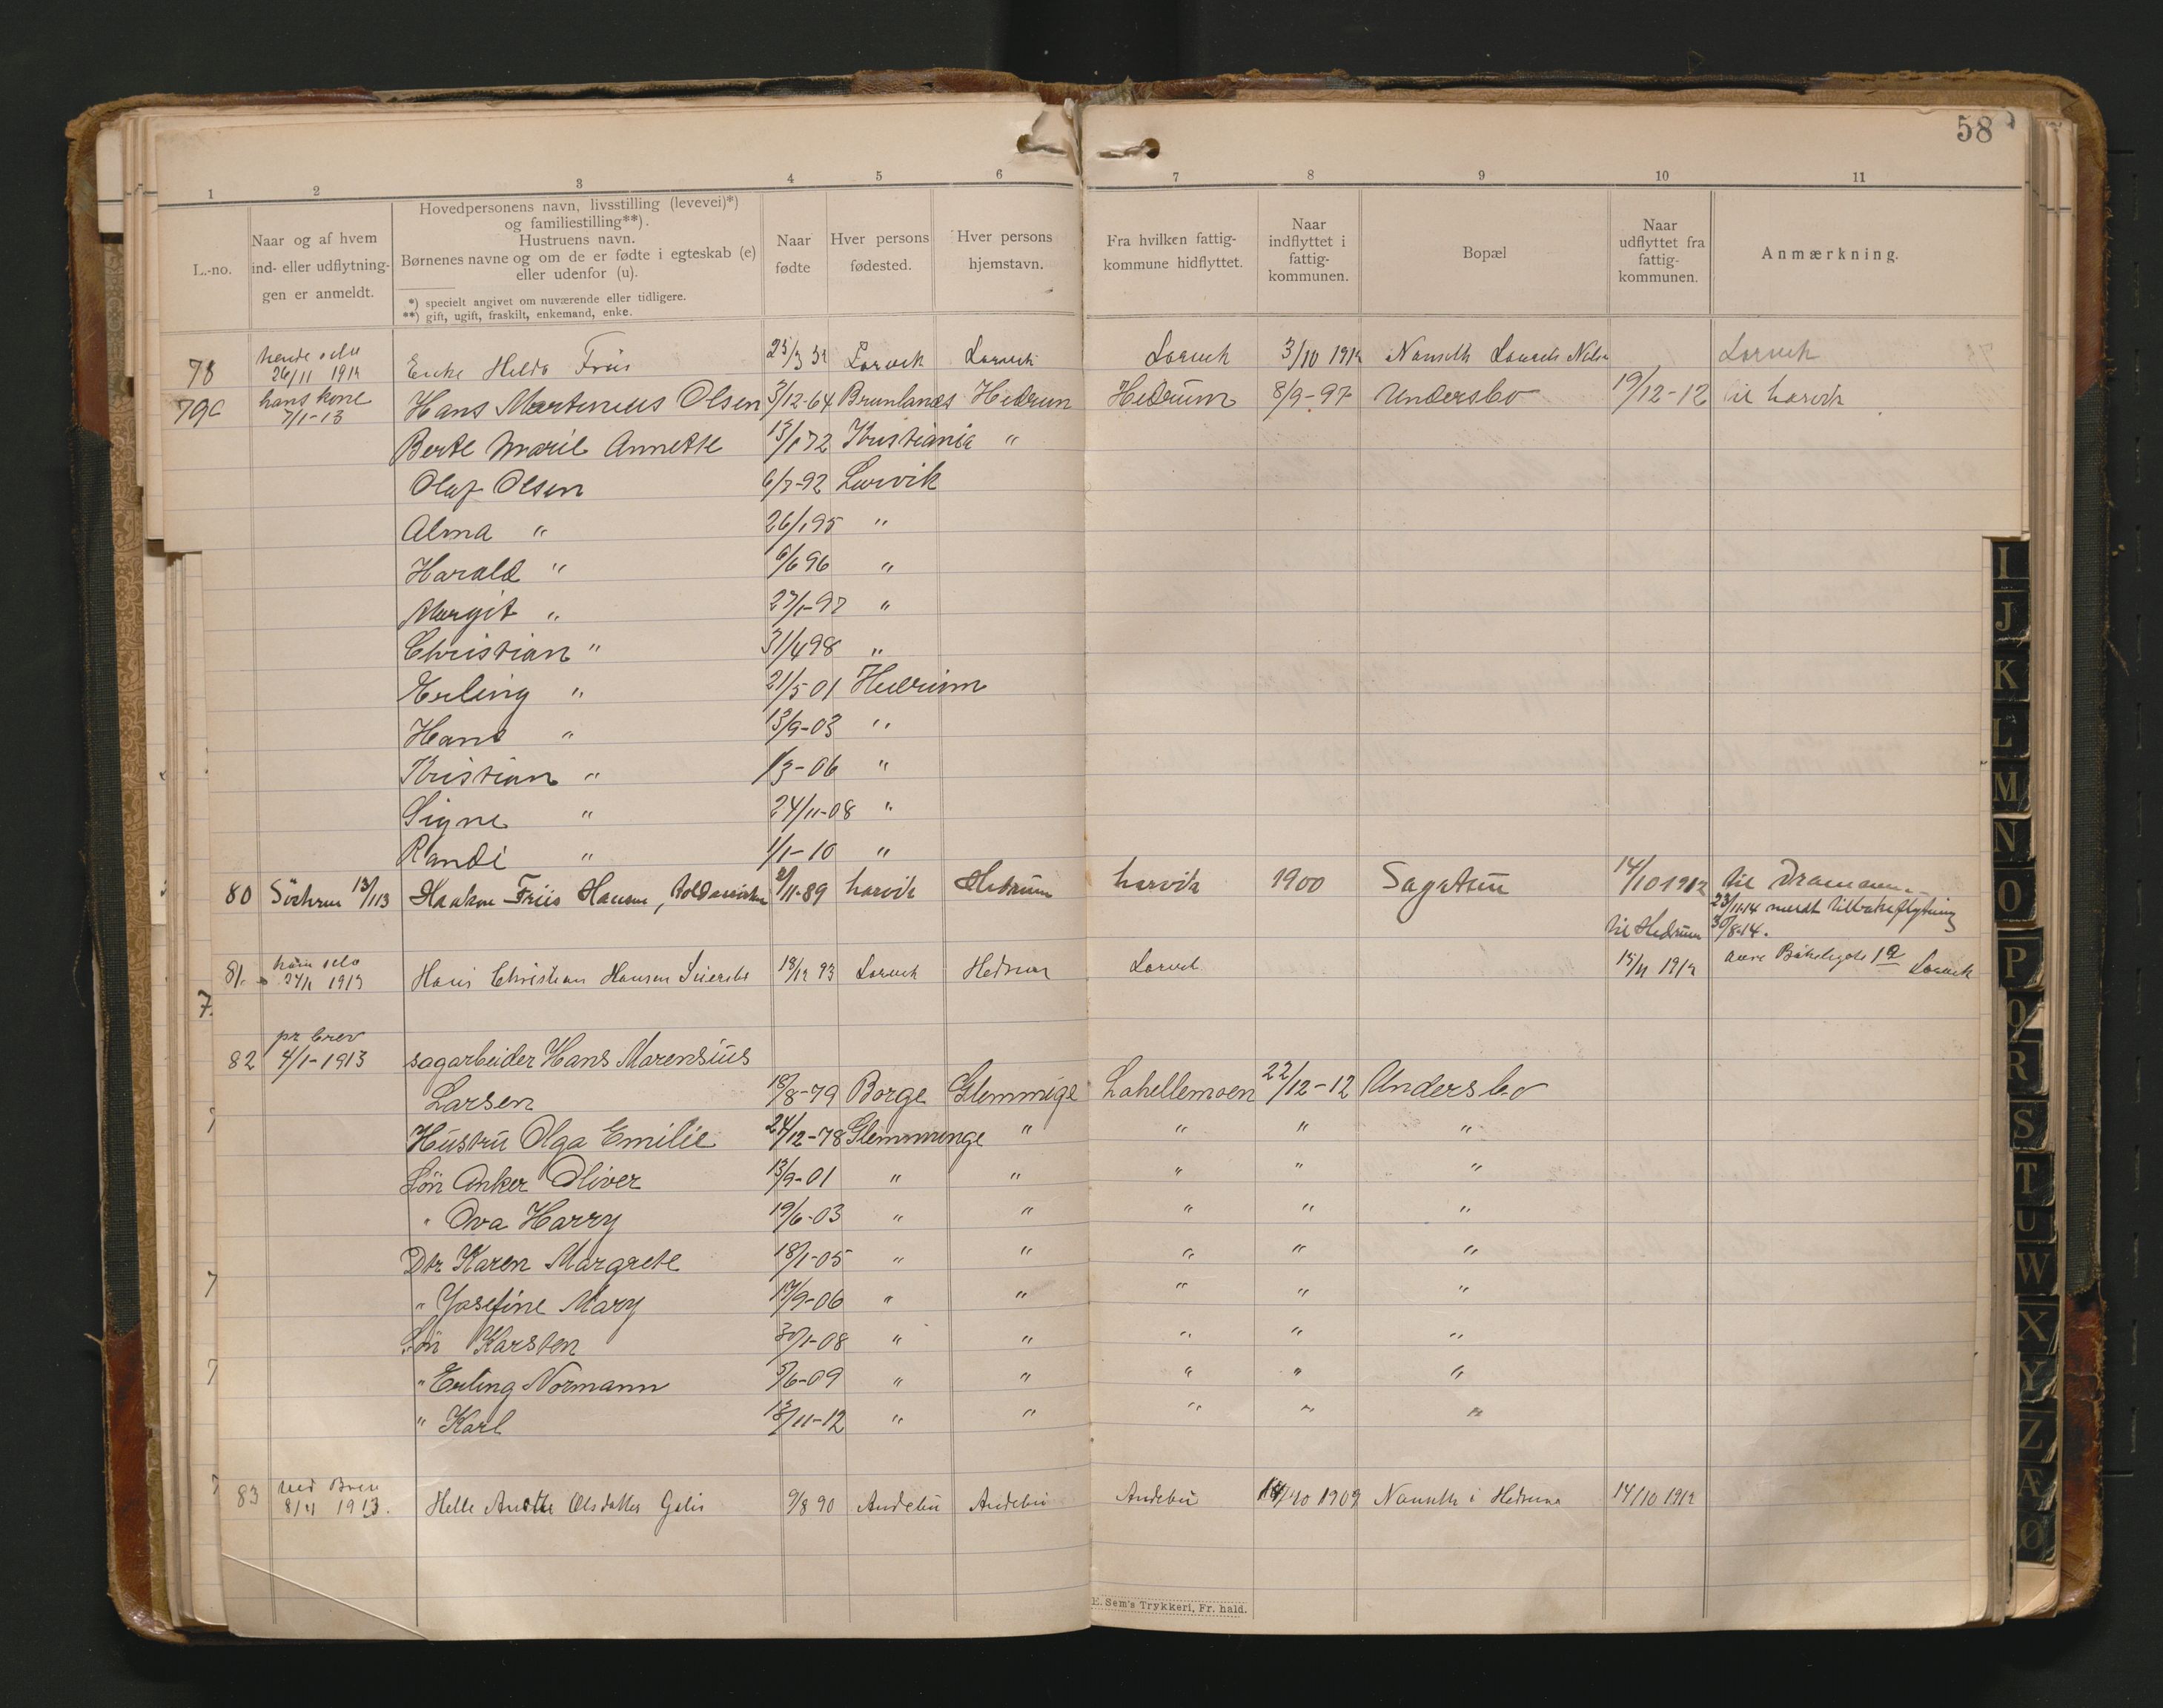 58
1 2 3 4 5 6 7 8 9 10 11
L.-no.
Naar og af hvem
ind- eller udflytnin-
gen er anmeldt.
Hovedpersonens navn, livsstilling (levevei)*)
og familiestilling**).
Hustruens navn.
Børnenes navne og om de er fødte i egteskab (e)
eller udenfor (u).
*) specielt angivet om nuværende eller tidligere.
**) gift, ugift, fraskilt, enkemand, enke.
Naar
fødte
Hver persons
fødested.
Hver persons
hjemstavn.
Fra hvilken fattig-
kommune hidflyttet.
Naar
indflyttet i
fattig-
kommunen.
Bopæl
Naar
udflyttet fra
fattig-
kommunen.
Anmærkning.
78 26/11 1912 Enke Friis Larvik Larvik Larvik 3/10 1912 Larvik
79 hans kone 7/1-13 Hans Martinius Olsen 3/12-64 Brunlanes Hedrum Hedrum 8/9-97 Undersbo 19/12-12 til Larvik
Berte Marie Annette 13/1 72 Kristiania "
Olaf Olsen 6/7-92 Larvik
Alma " 26/1 95 "
Harald " 6/6 96 "
Margit " 27/1-97 "
Christian " 31/4 98 "
Erling " 21/5 01 Hedrum
Hans " 13/9-03 "
Kristian " 1/3-06 "
Signe " 24/11-08 "
Randi " 1/1-10 "
80 13/1 13 Haakon Friis Hansen, 2/11-89 Larvik Hedrum Larvik 1900 Sagatun 14/10 1912 til Drammen
23/11-14 meldt tilbakeflytning
til Hedrum 30/8-14.
81 1913 Hans Christian Hansen 18/12 93 Larvik Hedrum Larvik 15/11 1912 Larvik
pr brev
82 4/1-1913 sagarbeider Hans Marensius
Larsen 18/8-79 Borge Glemmige Lahellemoen 22/12-12 Undersbo
Hustru Olga Emilie 24/12-78 Glemminge " " " "
Søn Anker Oliver 13/9-01 " " " " "
" Ova Harry 19/6-03 " " " " "
Dtr Karen Margrete 18/1-05 " " " " "
" Josefine Mary 17/9-06 " " " " "
Søn Karsten 30/1-08 " " " " "
" Erling Normann 5/6-09 " " " " "
" Karl 13/11-12 " " " " "
83 ved Brev
8/4 1913. Helle Olsdatter 9/8 90 Andebu Andebu Andebu 14/10 1909 i Hedrum 14/10 1912
E. Sem's Trykkeri, Fr. hald.
I
J
K
L
M
N
O
P
Q
R
S
T
U
W
X
Y
Z
Æ
Ø